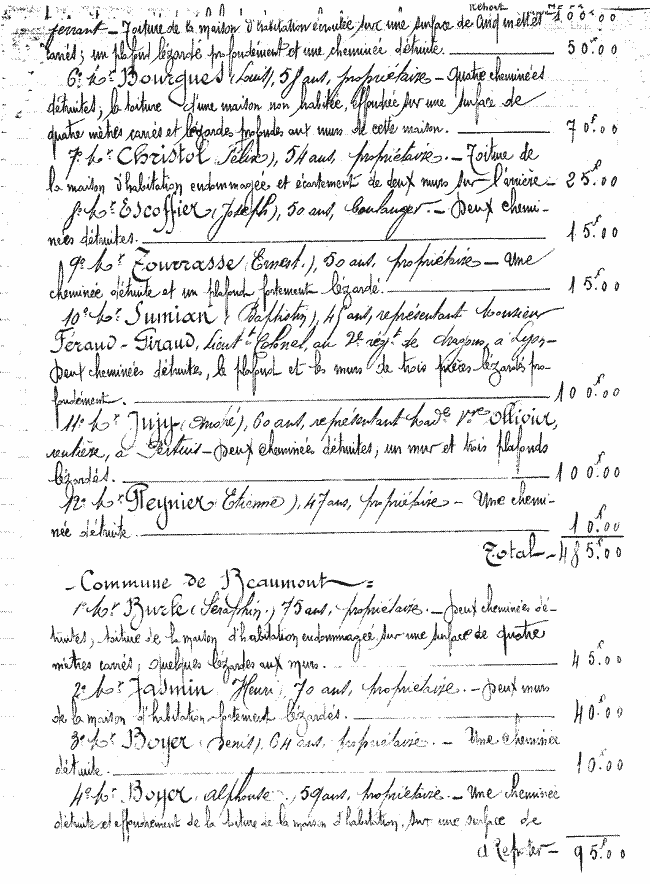 Report 100.00
ferrant — Toiture de la maison d'habitation écroulée sur une surface de cinq mètres
carrés; un plafond lézardé profondément et une cheminée détruite. 50f.00
6° Mr Bourgues (Louis), 58 ans, propriétaire — Quatre cheminées
détruites; la toiture d'une maison non habitée, effondrée sur une surface de
quatre mètres carrés et lézardes profondes aux murs de cette maison. 70f.00
7° Mr Christol (Félix), 54 ans, propriétaire. — Toiture de
la maison d'habitation endommagée et écartement de deux murs sur l'arrière — 25.00
8° Mr Escoffier (Joseph), 50 ans, boulanger. — Deux chemi-
nées détruites. 15f.00
9° Mr Tourrasse (Ernest), 50 ans, propriétaire — Une
cheminée détruite et un plafond fortement lézardé. 15f.00
10° Mr Sumian (Baptistin), 45 ans, représentant Monsieur
Feraud-Giraud, Lieutt Colonel, au 2e régt de dragons, à Lyon —
Deux cheminées détruites, le plafond et les murs de trois pièces lézardés pro-
fondément. 100f.00
11° Mr Jujy (André), 60 ans, représentant Made Vve Ollivier,
rentière, à Pertuis — Deux cheminées détruites, un mur et trois plafonds
lézardés. 100f.00
12° Mr Reynier (Etienne), 47 ans, propriétaire — Une chemi-
née détruite. 10f.00
Total — 485f.00
— Commune de Beaumont — =
1° Mr Burle (Séraphin), 75 ans, propriétaire. — Deux cheminées dé-
truites; toiture de la maison d'habitation endommagée, sur une surface de quatre
mètres carrés, quelques lézardes aux murs. 45f.00
2° Mr Jasmin (Henri), 70 ans, propriétaire. — Deux murs
de la maison d'habitation fortement lézardés. 40f.00
3° Mr Boyer (Denis), 64 ans, propriétaire. — Une cheminée
détruite. 10f.00
4° Mr Boyer (Alphonse), 59 ans, propriétaire. — Une cheminée
détruite et effondrement de la toiture de la maison d'habitation, sur une surface de
à Reporter — 95f.00